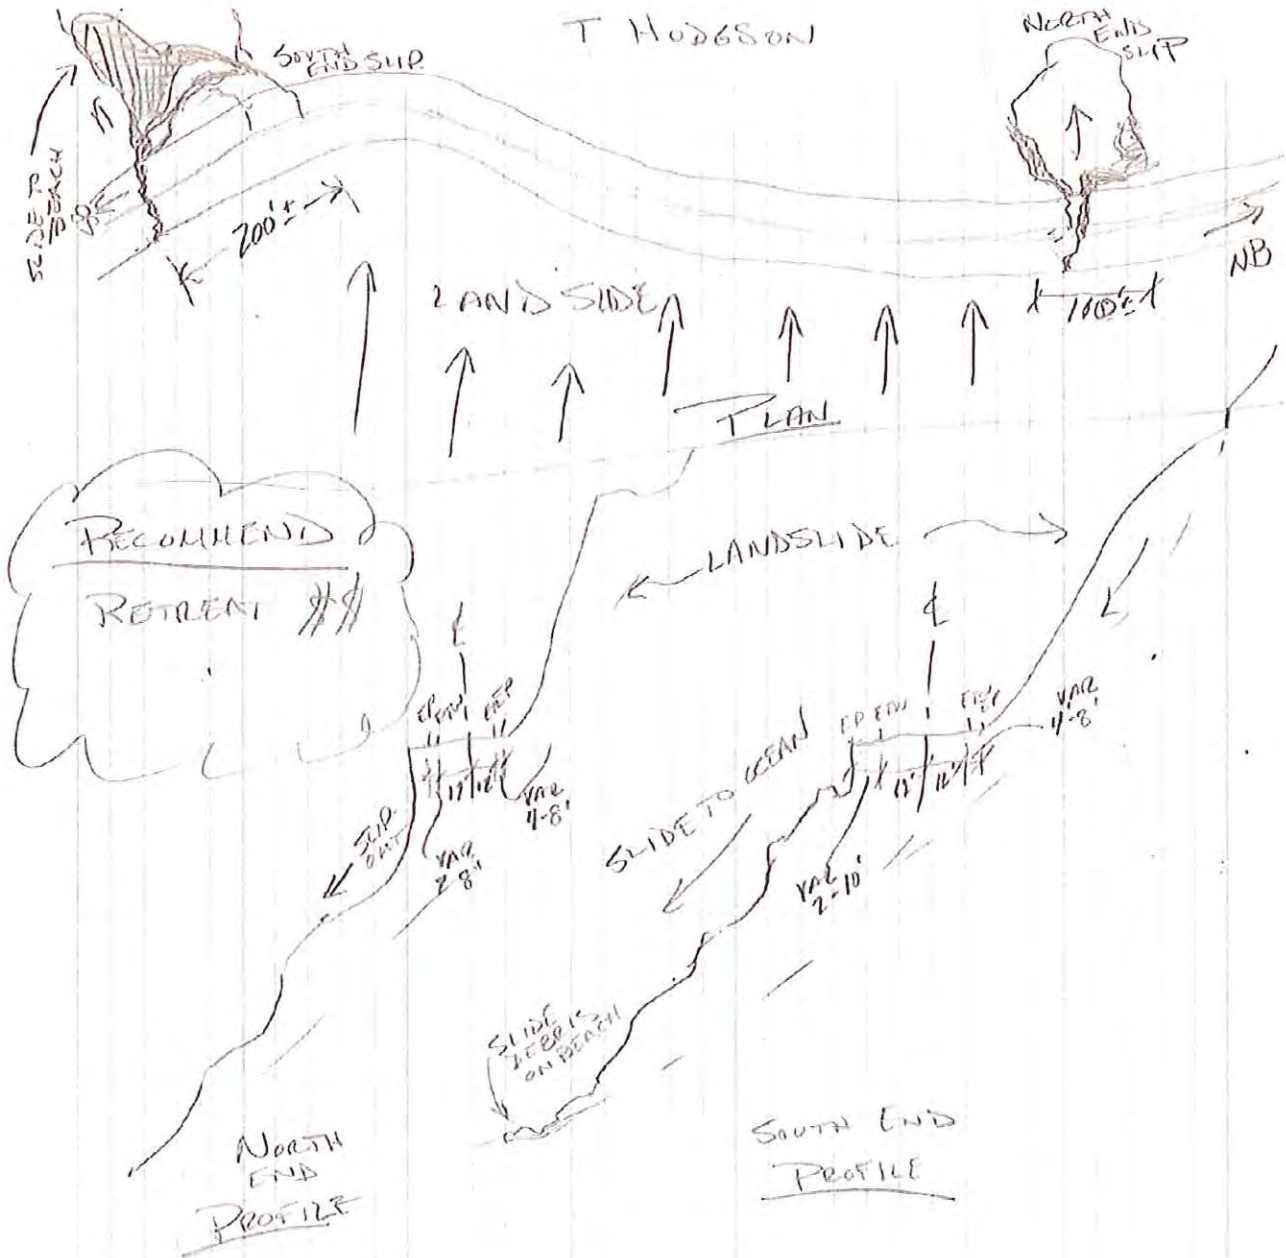 T HODGSON
SOUTH
END SLIP
NORTH
END
SLIP
SLIDE TO
BEACH
200'±
LANDSLIDE
100'±
NB
PLAN
RECOMMEND
RETREAT $$
LANDSLIDE
℄
℄
EP ETW
ETW EP
12' 12'
VAR
4-8'
VAR
2-8'
SLIP
OUT
SLIDE TO OCEAN
EP ETW
ETW
EP
12' 12'
VAR
4-8'
VAR
2-10'
SLIDE
DEBRIS
ON BEACH
NORTH
END
PROFILE
SOUTH END
PROFILE